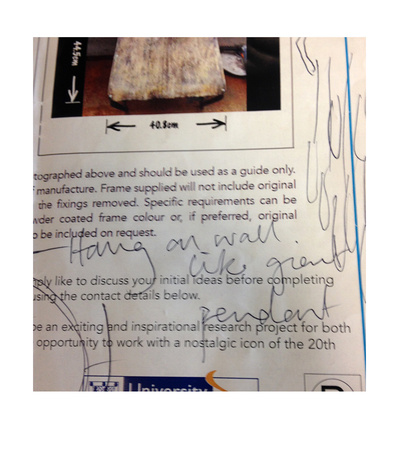 44.5cm
40.8cm
tographed above and should be used as a guide only.
manufacture. Frame supplied will not include original
the fixings removed. Specific requirements can be
wder coated frame colour or, if preferred, original
o be included on request.
Hang on wall.
like giant
ply like to discuss your initial ideas before completing
using the contact details below.
pendant
be an exciting and inspirational research project for both
opportunity to work with a nostalgic icon of the 20th
University